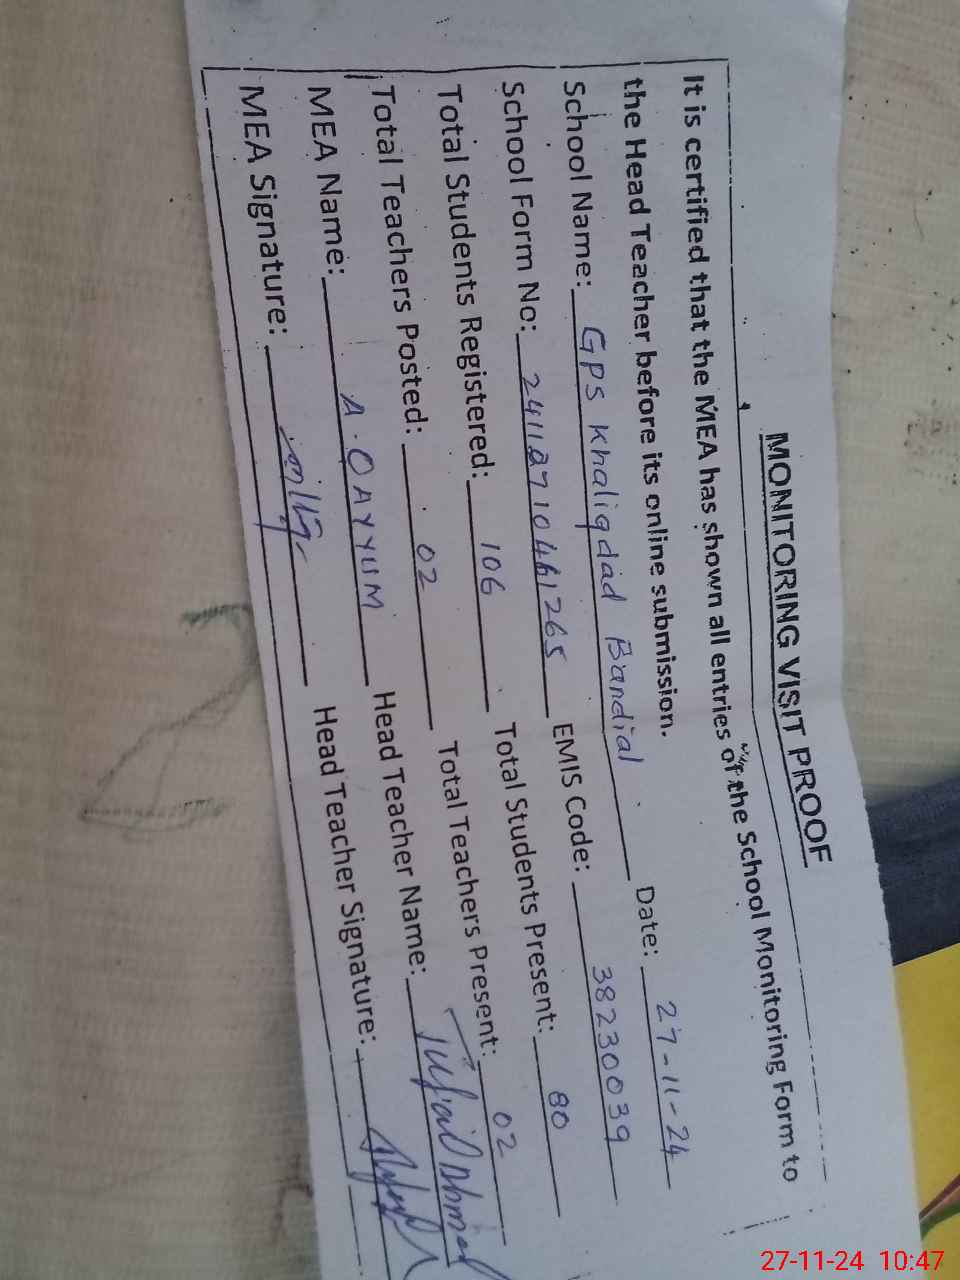 MONITORING VISIT PROOF
It is certified that the MEA has shown all entries of the School Monitoring Form to
the Head Teacher before its online submission.
School Name: GPS Khaliqdad Bandial Date: 27-11-24
School Form No: 24112710461265 EMIS Code: 38230039
Total Students Registered: 106 Total Students Present: 80
Total Teachers Posted: 02 Total Teachers Present: 02
MEA Name: A. QAYYUM Head Teacher Name: Tufail Ahmad
MEA Signature: Head Teacher Signature:
27-11-24 10:47